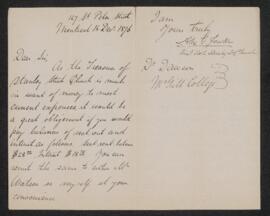 157 St Peter Street
Montreal 16 Dec. 1876
Dear Sir,
As the Treasurer of
Stanley Street Church is much
in want of money to meet
current expenses it would be
a great obligement if you would
pay balance of rent and
interest as follows Seat rent balance
$28.00 Interest $18.00 You can
remit the same to either Mr
Watson or myself at your
convenience
I am
Yours truly
Dr Dawson
McGill College